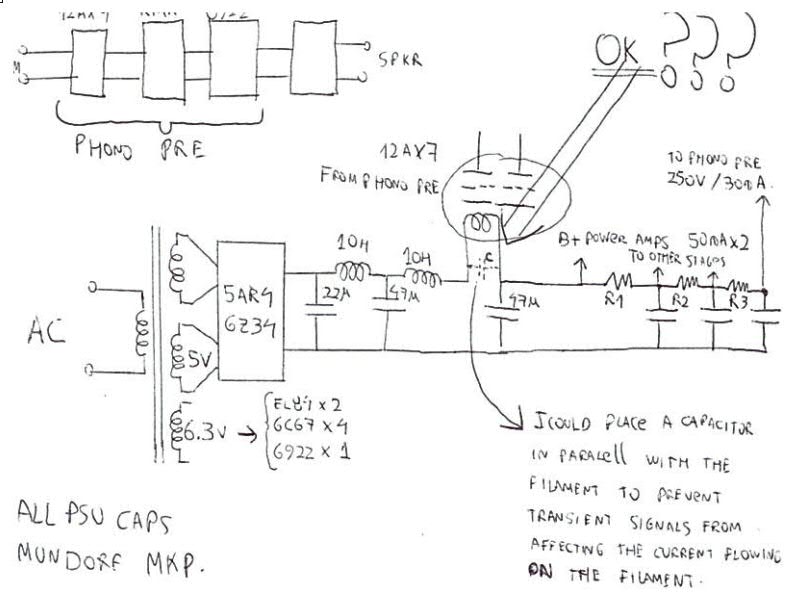 12AX7
M
SPKR
PHONO PRE
OK ???
12AX7
FROM PHONO PRE
TO PHONO PRE
250V / 300A.
B+ POWER AMPS 50mA×2
TO OTHER STAGES
10H
10H
C
22µ
47µ
47µ
R1
R2
R3
5AR4
GZ34
AC
5V
6.3V → EL84 × 2
6CG7 × 4
6922 × 1
I COULD PLACE A CAPACITOR
IN PARALELL WITH THE
FILAMENT TO PREVENT
TRANSIENT SIGNALS FROM
AFFECTING THE CURRENT FLOWING
ON THE FILAMENT.
ALL PSU CAPS
MUNDORF MKP.